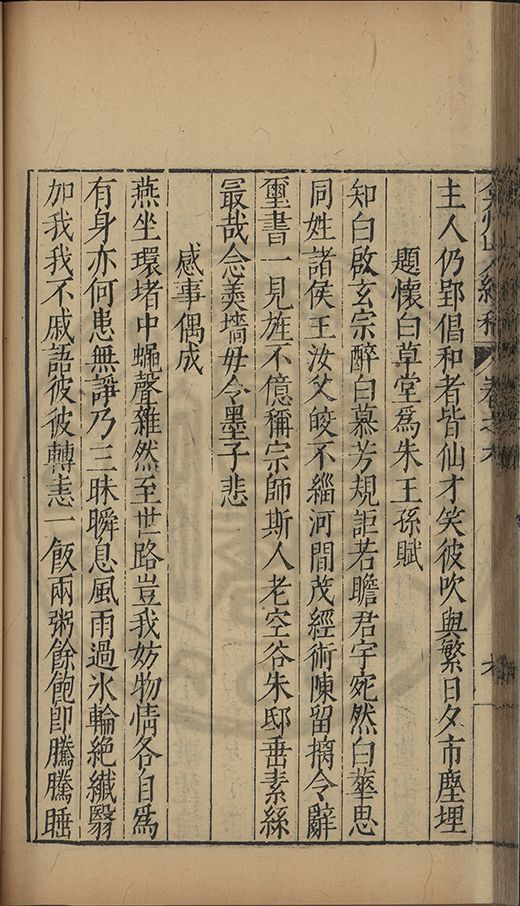 主人仍郢倡和者皆仙才笑彼吹與繁日夕市塵埋
題懷白草堂爲朱王孫賦
知白啟玄宗醉白慕芳規詎若瞻君宇宛然白華思
同姓諸侯王汝父皎不緇河間茂經術陳留摛令辭
璽書一見旌不億稱宗師斯人老空谷朱邸垂素絲
最哉念羹墻毋令墨子悲
感事偶成
燕坐環堵中蠅聲雜然至世路豈我妨物情各自爲
有身亦何患無諍乃三昧瞬息風雨過氷輪絶纖翳
加我我不戚語彼彼轉恚一飯兩粥餘飽卽騰騰睡